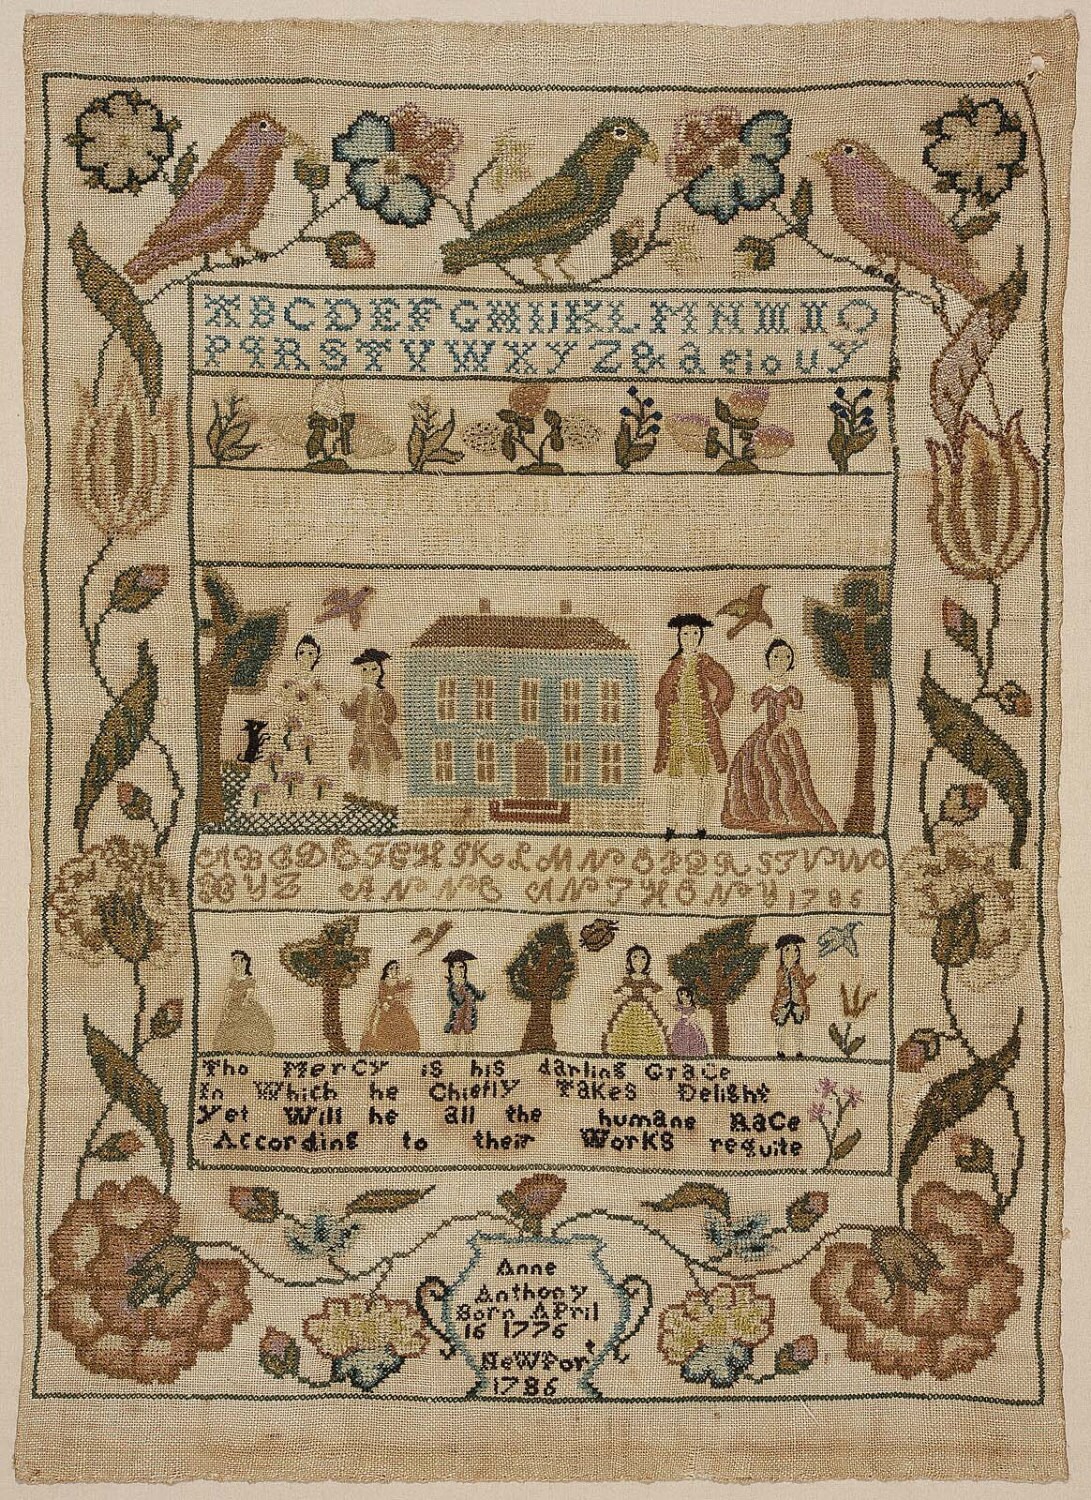 A B C D E F G H I K L M N O
P Q R S T V W X Y Z & a e i o u y
A B C D E F G H I K L M N O P Q R S T V W
X Y Z ANNE ANTHONY 1786
Tho Mercy is his darling Grace
In Which he Chiefly Takes Delight
Yet Will he all the humane Race
According to their Works requite
Anne
Anthony
Born April
16 1776
Newport
1786